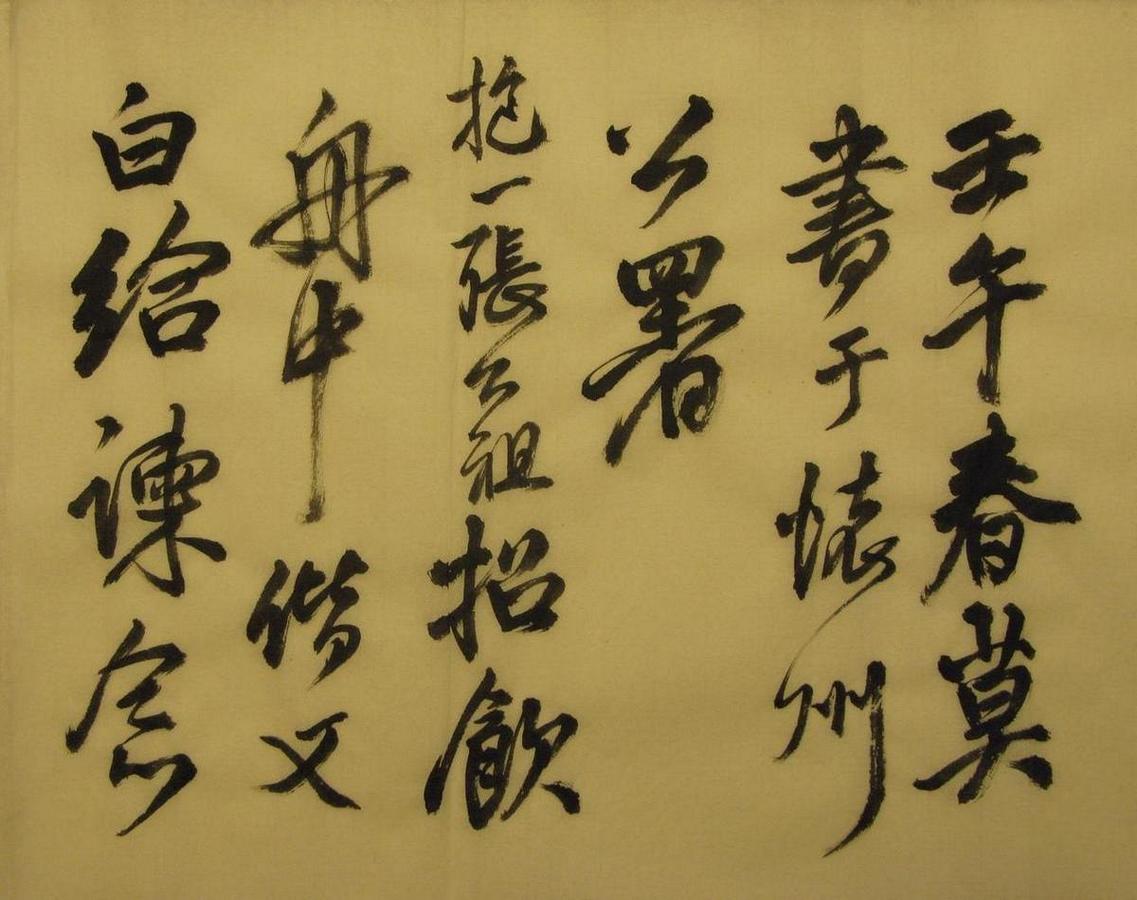 壬午春莫
書于懷州
公署
抱一張公祖招飲
舟中偕文
白給諫念